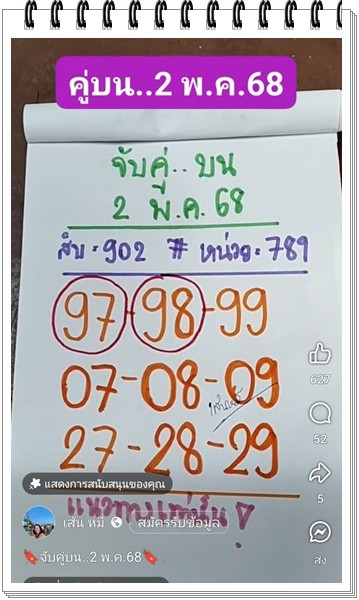 คู่บน..2 พ.ค.68
จับคู่.. บน
2 พ.ค. 68
สิบ = 902 # หน่วย = 789
97-98-99
07-08-09
27-28-29
แสดงการสนับสนุนของคุณ
แนวทางเท่านั้น
เส้น หมี่
สมัครรับข้อมูล
🔖จับคู่บน..2 พ.ค.68🔖
627
52
5
ส่ง